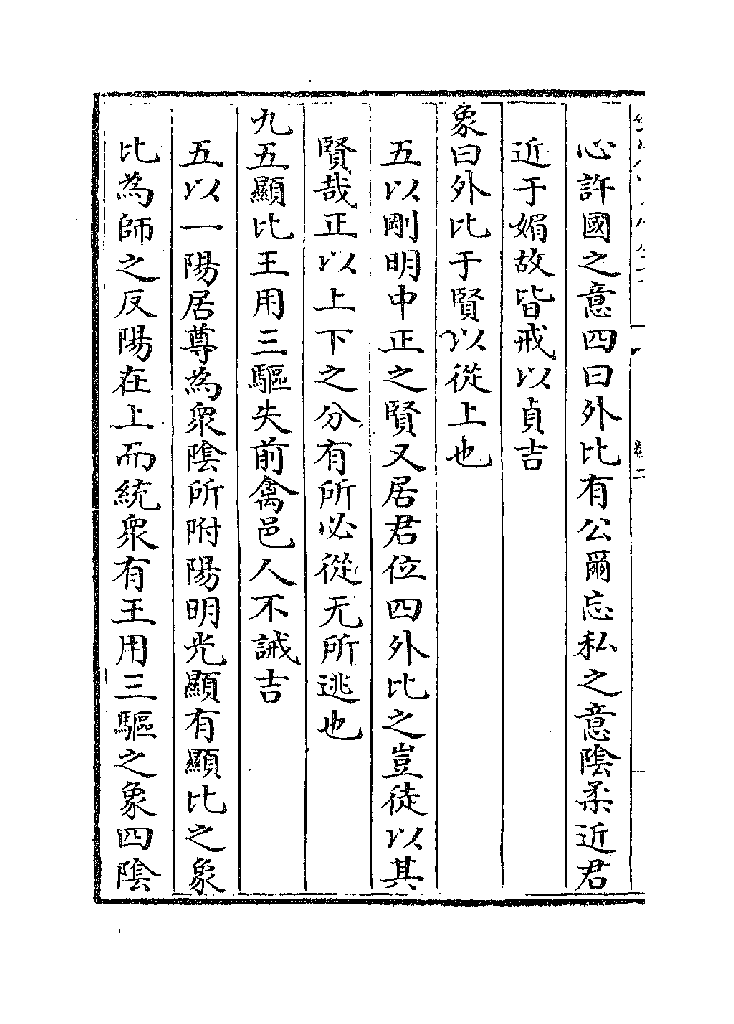 心許國之意四曰外比有公爾忘私之意陰柔近君
近于媚故皆戒以貞吉
象曰外比于賢以從上也
五以剛明中正之賢又居君位四外比之豈徒以其
賢哉正以上下之分有所必從无所逃也
九五顯比王用三驅失前禽邑人不誡吉
五以一陽居尊為衆陰所附陽明光顯有顯比之象
比為師之反陽在上而統衆有王用三驅之象四陰